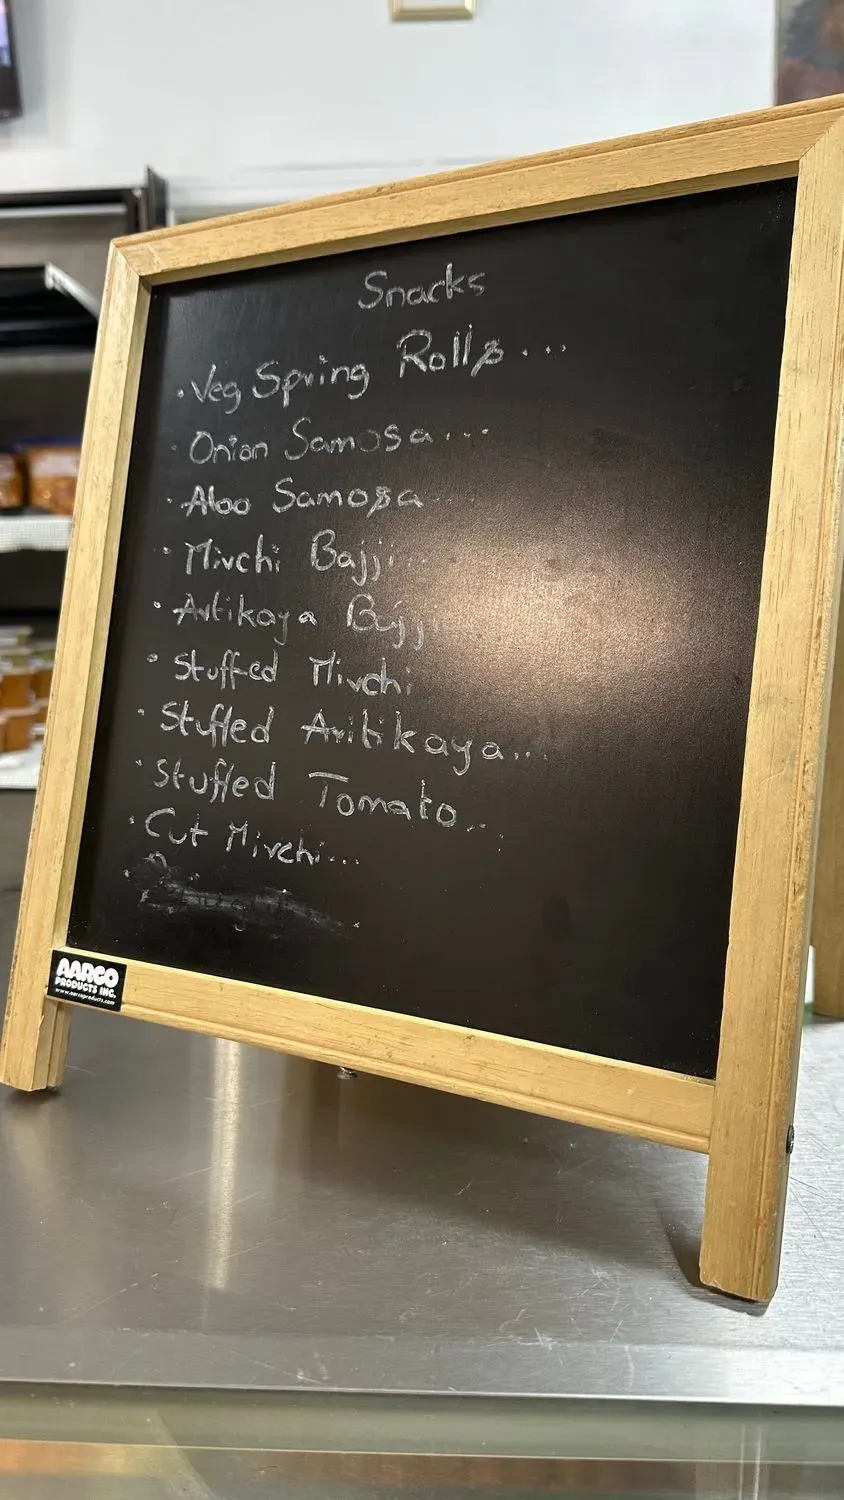 Snacks
· Veg Spring Rolls...
· Onion Samosa...
· Aloo Samosa..
· Mirchi Bajji...
· Artikaya Bajji
· Stuffed Mirchi
· Stuffed Aritikaya...
· Stuffed Tomato...
· Cut Mirchi...
AARCO
PRODUCTS INC.
www.aarcoproducts.com